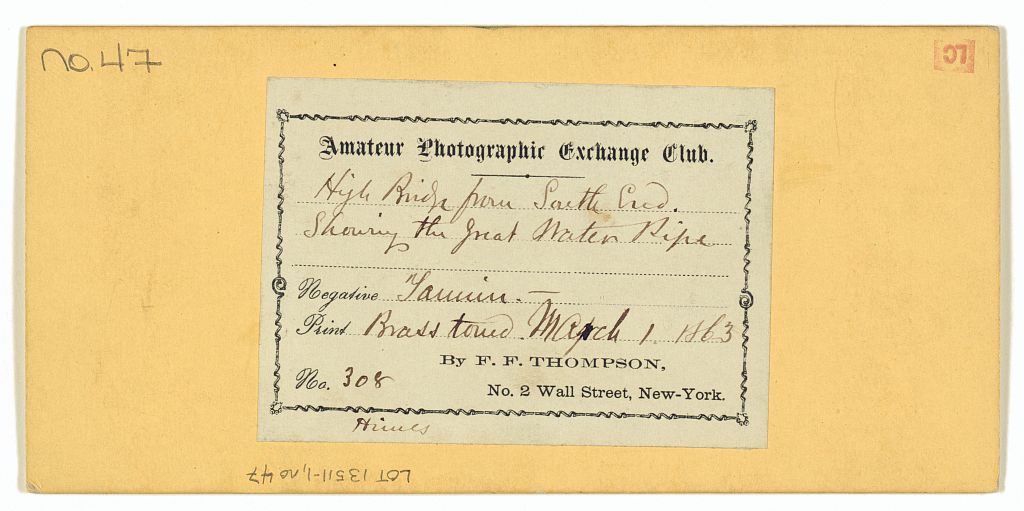 No. 47
LC
Amateur Photographic Exchange Club.
High Bridge from South End.
Showing the Great Water Pipe
Negative Tannin. —
Print Brass toned. March 1. 1863
By F. F. THOMPSON,
No. 308
No. 2 Wall Street, New-York.
Himes
LOT 13511-1, no 47